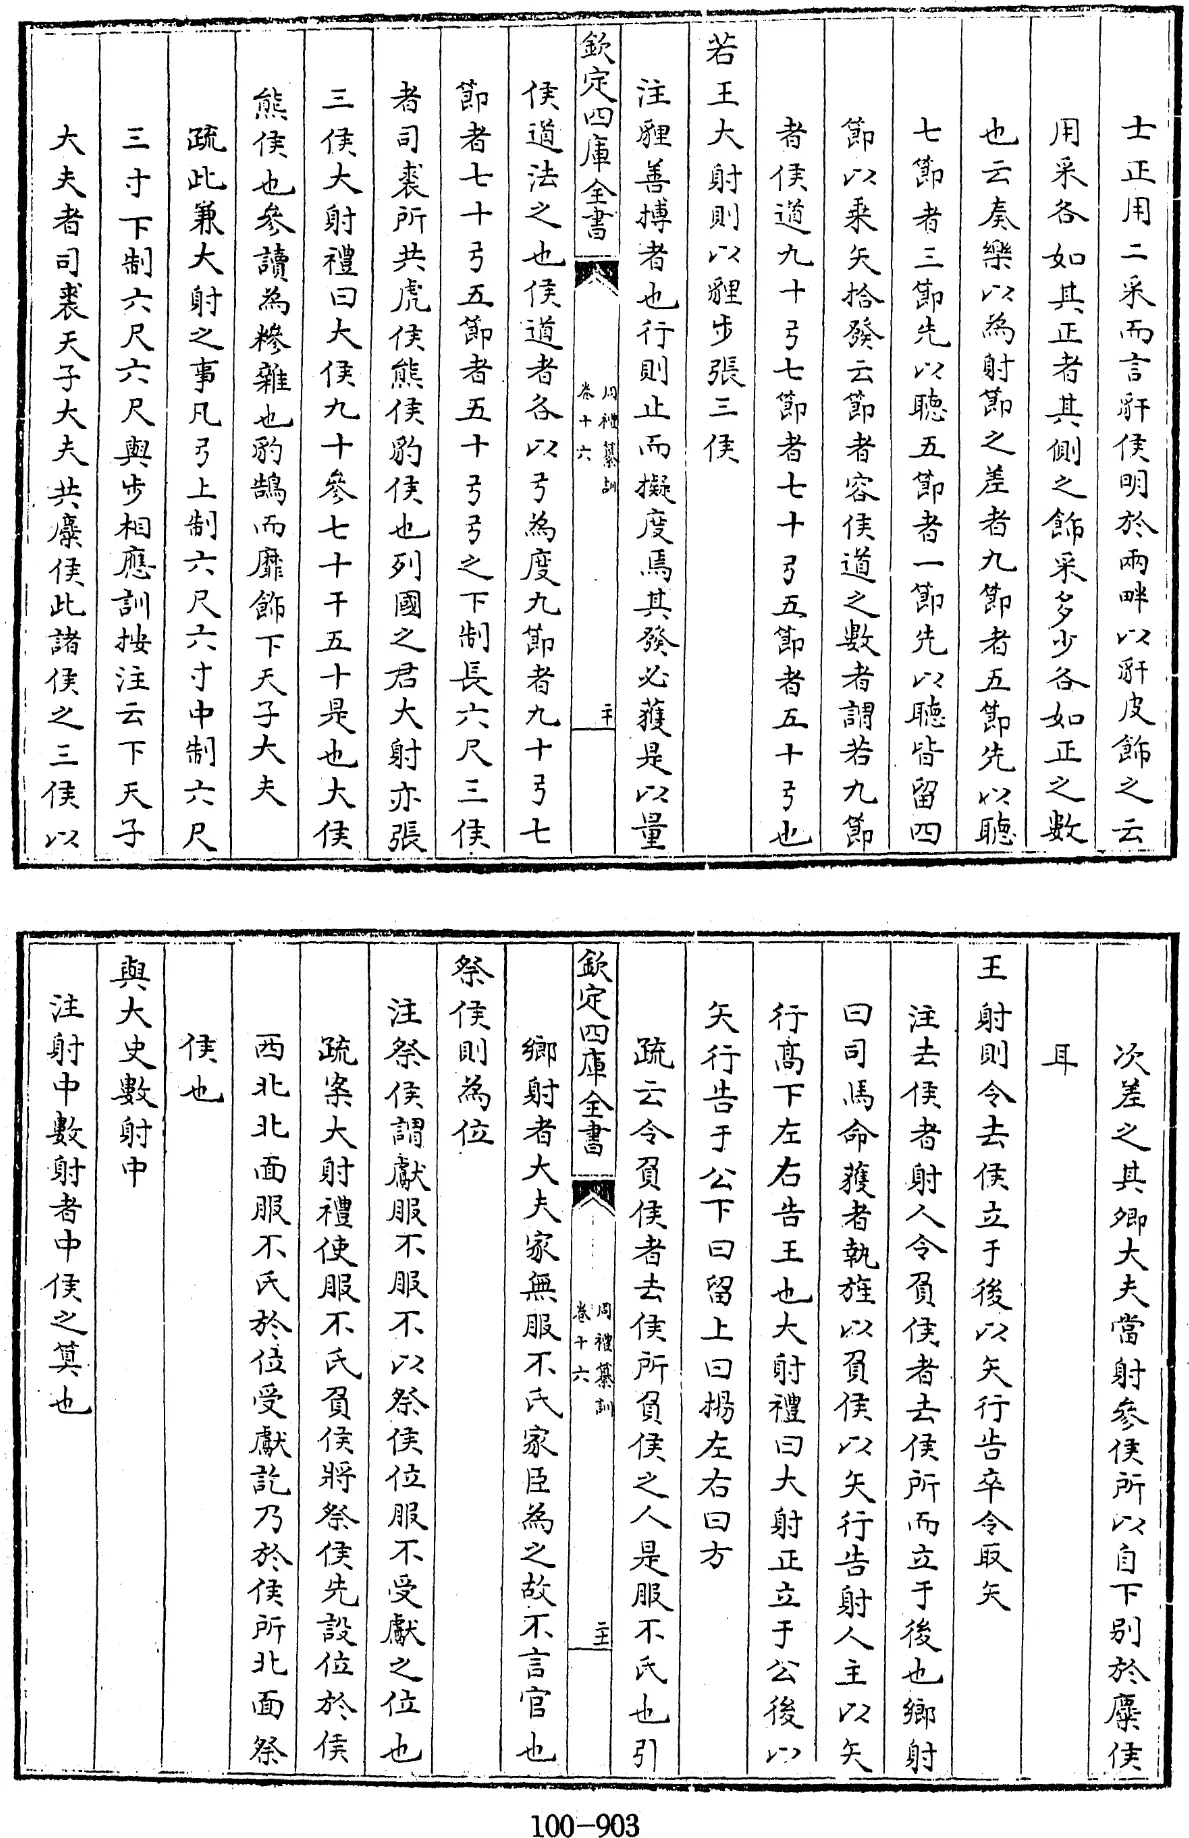 士正用二采而言豻侯明於兩畔以豻皮飾之云
用采各如其正者其側之飾采多少各如正之數
也云奏樂以為射節之差者九節者五節先以聽
七節者三節先以聽五節者一節先以聽皆留四
節以乘矢拾發云節者容侯道之數者謂若九節
者侯道九十弓七節者七十弓五節者五十弓也
若王大射則以貍步張三侯
注貍善搏者也行則止而擬度焉其發必獲是以量
欽定四庫全書
周禮纂訓
卷十六
二十
侯道法之也侯道者各以弓為度九節者九十弓七
節者七十弓五節者五十弓弓之下制長六尺三侯
者司裘所共虎侯熊侯豹侯也列國之君大射亦張
三侯大射禮曰大侯九十參七十干五十是也大侯
熊侯也參讀為糝雜也豹鵠而靡飾下天子大夫
疏此兼大射之事凡弓上制六尺六寸中制六尺
三寸下制六尺六尺與步相應訓按注云下天子
大夫者司裘天子大夫共麋侯此諸侯之三侯以
次差之其卿大夫當射參侯所以自下別於麋侯
耳
王射則令去侯立于後以矢行告卒令取矢
注去侯者射人令負侯者去侯所而立于後也鄉射
曰司馬命獲者執旌以負侯以矢行告射人主以矢
行高下左右告王也大射禮曰大射正立于公後以
矢行告于公下曰留上曰揚左右曰方
疏云令負侯者去侯所負侯之人是服不氏也引
欽定四庫全書
周禮纂訓
卷十六
二十一
鄉射者大夫家無服不氏家臣為之故不言官也
祭侯則為位
注祭侯謂獻服不服不以祭侯位服不受獻之位也
疏案大射禮使服不氏負侯將祭侯先設位於侯
西北北面服不氏於位受獻訖乃於侯所北面祭
侯也
與大史數射中
注射中數射者中侯之算也
100-903